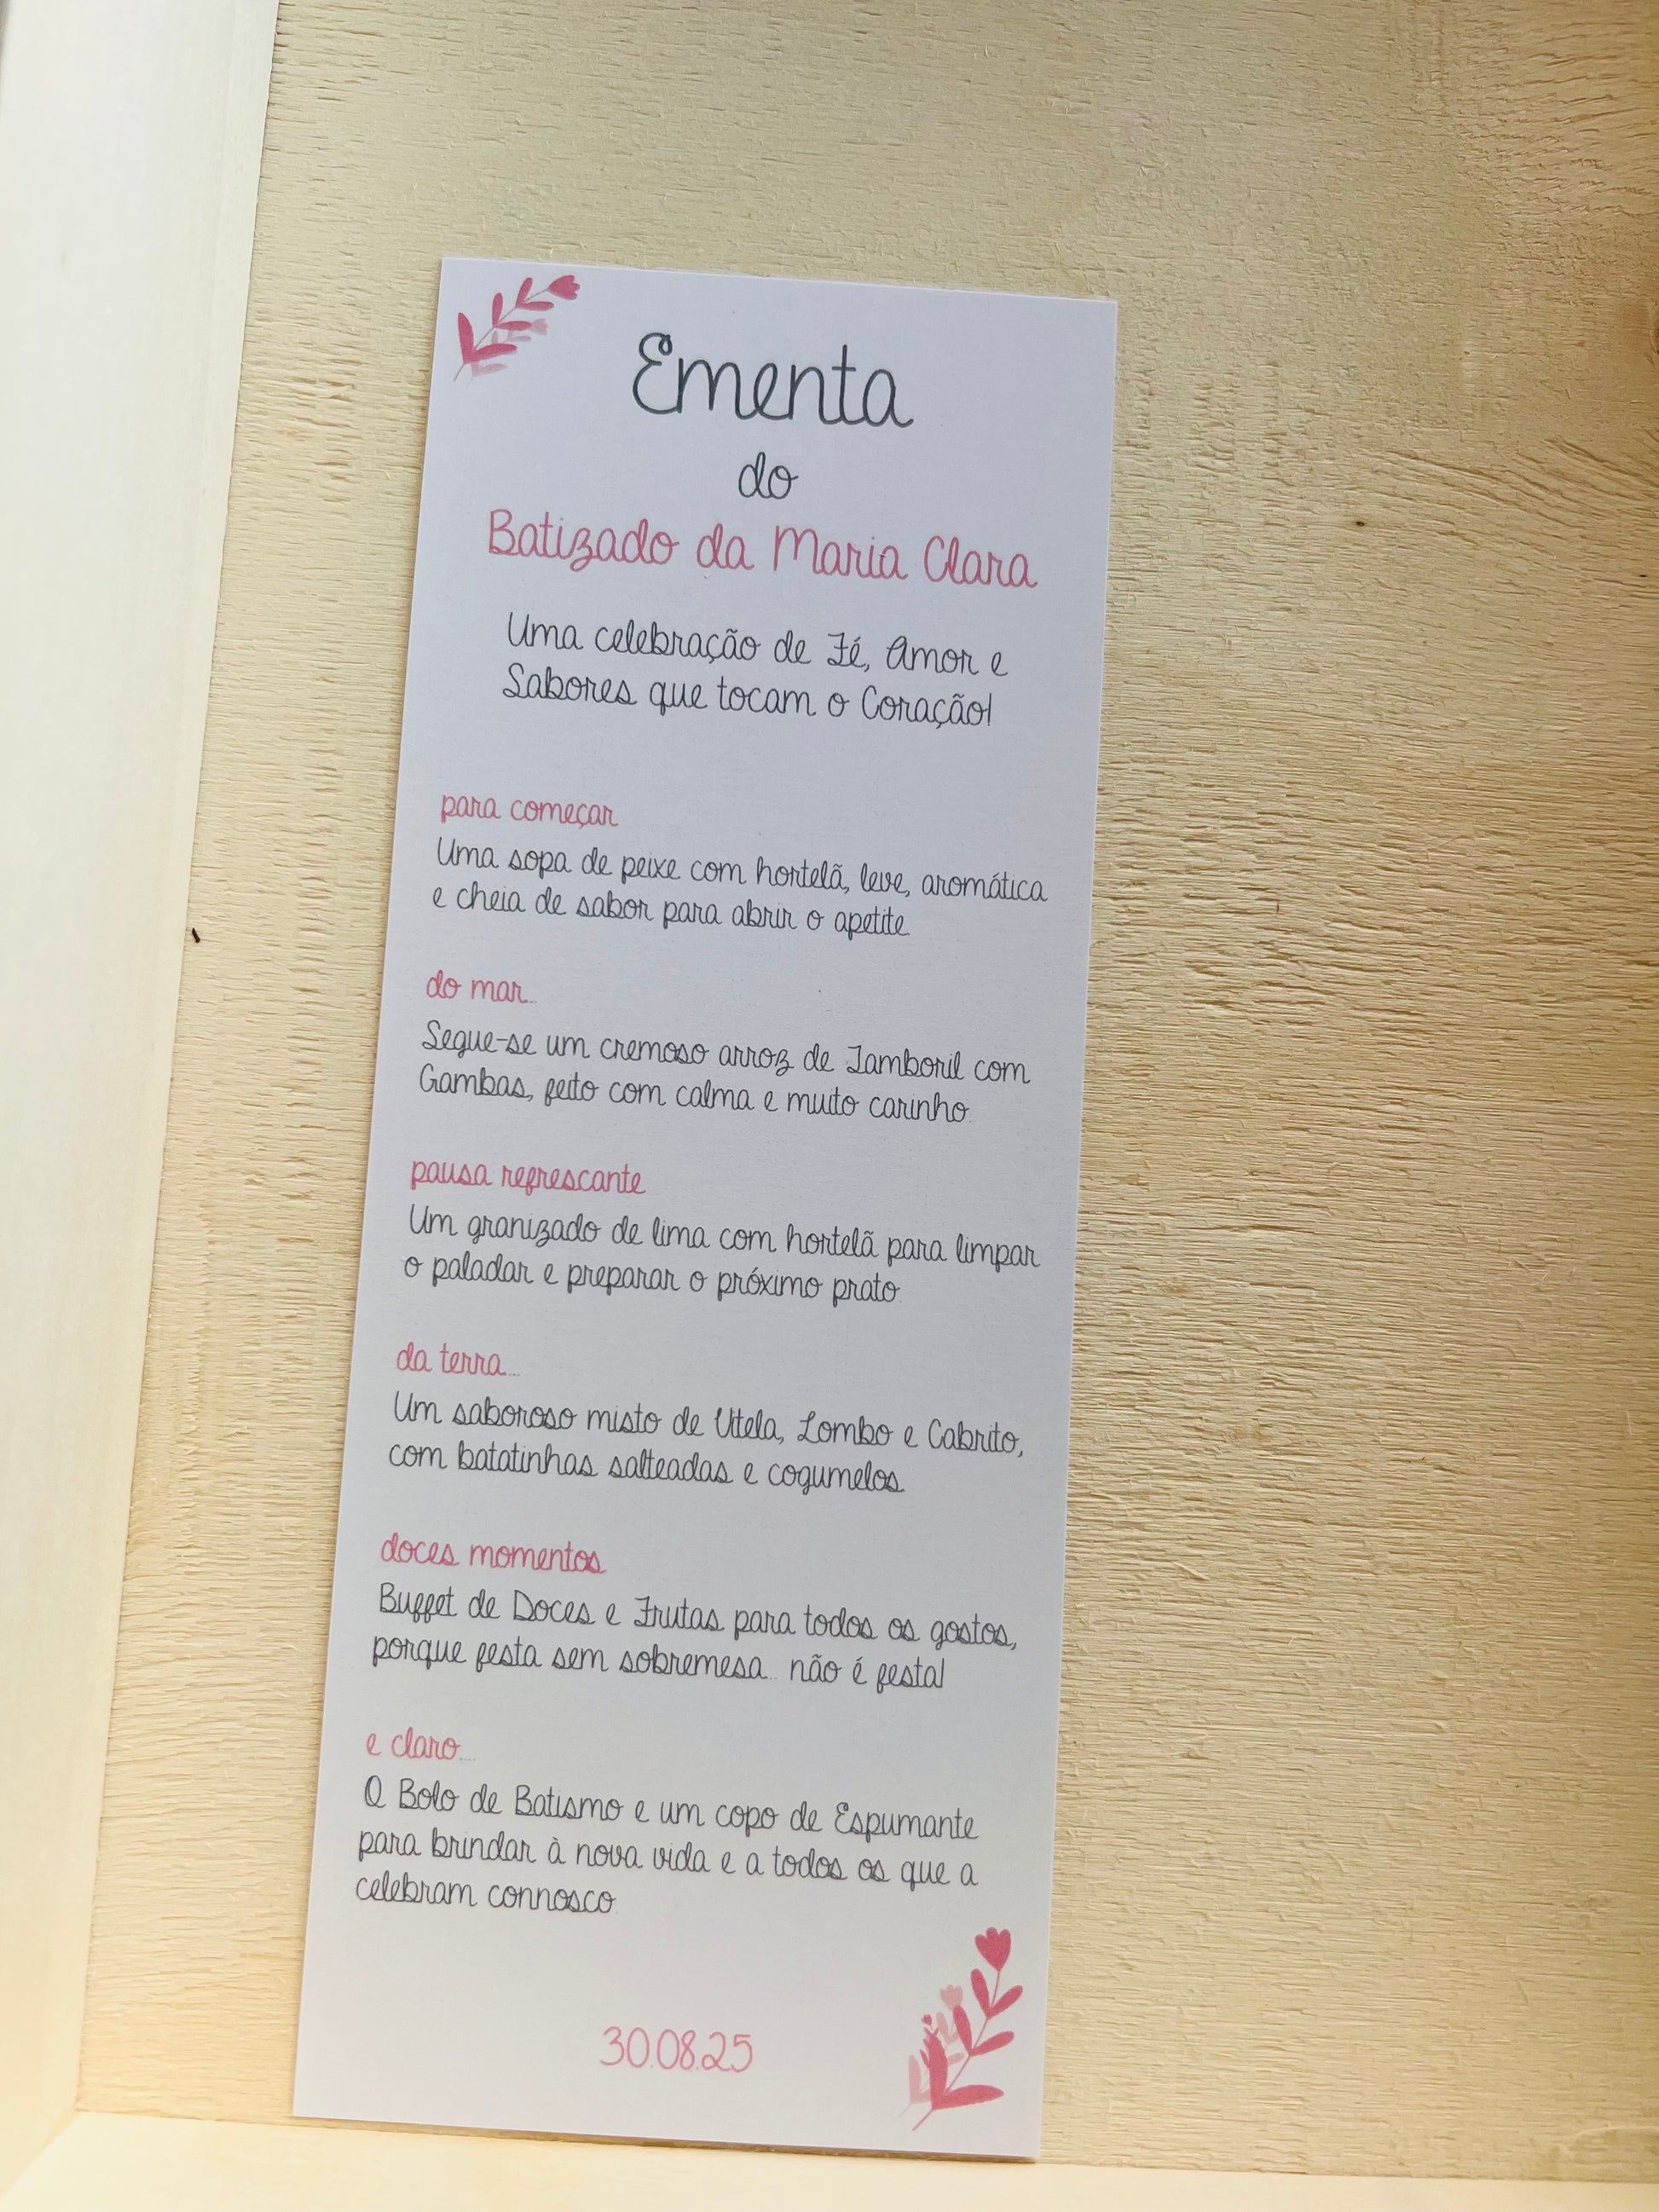 Ementa
do
Batizado da Maria Clara
Uma celebração de Fé, Amor e
Sabores que tocam o Coração!
para começar
Uma sopa de peixe com hortelã, leve, aromática
e cheia de sabor para abrir o apetite.
do mar...
Segue-se um cremoso arroz de Tamboril com
Gambas, feito com calma e muito carinho.
pausa refrescante
Um granizado de lima com hortelã para limpar
o paladar e preparar o próximo prato.
da terra...
Um saboroso misto de Vitela, Lombo e Cabrito,
com batatinhas salteadas e cogumelos.
doces momentos
Buffet de Doces e Frutas para todos os gostos,
porque festa sem sobremesa... não é festa!
e claro....
O Bolo de Batismo e um copo de Espumante
para brindar à nova vida e a todos os que a
celebram connosco.
30.08.25